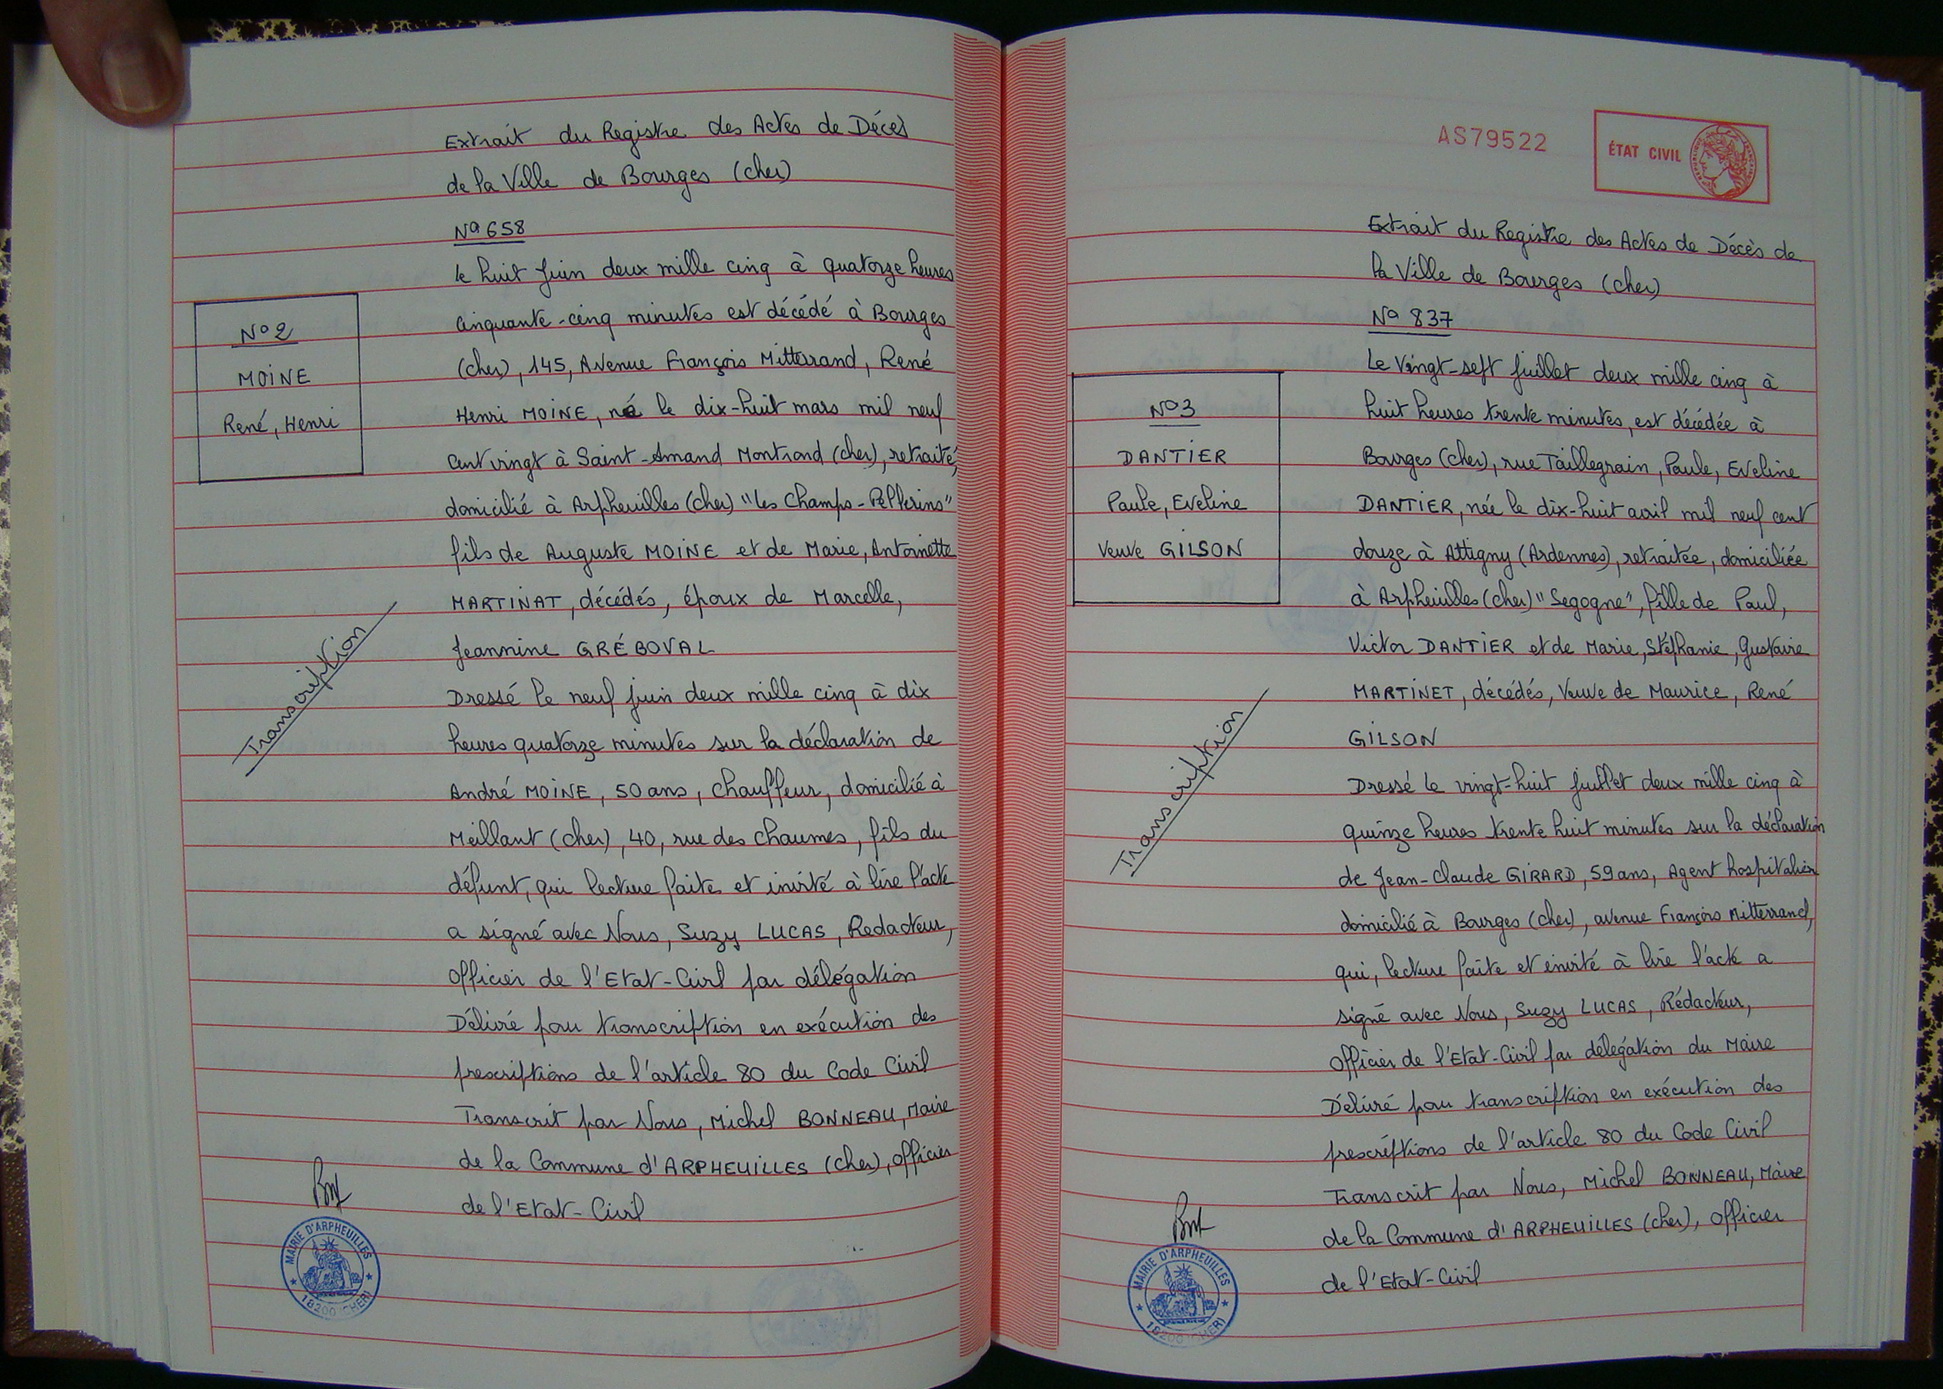 Extrait du Registre des Actes de Décès
de la Ville de Bourges (cher)
Nº 658
Le huit Juin deux mille cinq à quatorze heures
cinquante-cinq minutes est décédé à Bourges
(cher), 145, Avenue François Mitterrand, René
Henri MOINE, né le dix-huit mars mil neuf
cent vingt à Saint-Amand Montrond (cher), retraité,
domicilié à Arpheuilles (cher) "Les Champs-Pellerins"
fils de Auguste MOINE et de Marie, Antoinette
MARTINAT, décédés, époux de Marcelle,
Jeannine GRÉBOVAL
Dressé le neuf juin deux mille cinq à dix
heures quatorze minutes sur la déclaration de
André MOINE, 50 ans, Chauffeur, domicilié à
Meillant (cher), 40, rue des Chaumes, fils du
défunt, qui lecture faite et invité à lire l'acte
a signé avec Nous, Suzy LUCAS, Redacteur,
Officier de l'Etat-Civil par délégation
Délivré pour transcription en exécution des
prescriptions de l'article 80 du Code Civil
Transcrit par Nous, Michel BONNEAU, Maire
de la Commune d'ARPHEUILLES (cher), officier
de l'Etat-Civil
Nº 2
MOINE
René, Henri
Transcription
MAIRIE D'ARPHEUILLES
18200 (CHER)
AS79522
ÉTAT CIVIL
Extrait du Registre des Actes de Décès de
la Ville de Bourges (cher)
Nº 837
Le Vingt-sept Juillet deux mille cinq à
huit heures trente minutes, est décédée à
Bourges (cher), rue Taillegrain, Paule, Eveline
DANTIER, née le dix-huit avril mil neuf cent
douze à Attigny (Ardennes), retraitée, domiciliée
à Arpheuilles (cher) "Segogne", fille de Paul,
Victor DANTIER et de Marie, Stéphanie, Gustavie
MARTINET, décédés, Veuve de Maurice, René
GILSON
Dressé le vingt-huit juillet deux mille cinq à
quinze heures trente huit minutes sur la déclaration
de Jean-Claude GIRARD, 59 ans, Agent hospitalier
domicilié à Bourges (cher), avenue François Mitterrand,
qui, lecture faite et invité à lire l'acte a
signé avec Nous, Suzy LUCAS, Rédacteur,
Officier de l'Etat-Civil par délégation du Maire
Délivré pour transcription en exécution des
prescriptions de l'article 80 du Code Civil
Transcrit par Nous, Michel BONNEAU, Maire
de la Commune d'ARPHEUILLES (cher), officier
de l'Etat-Civil
Nº 3
DANTIER
Paule, Eveline
Veuve GILSON
Transcription
MAIRIE D'ARPHEUILLES
18200 (CHER)